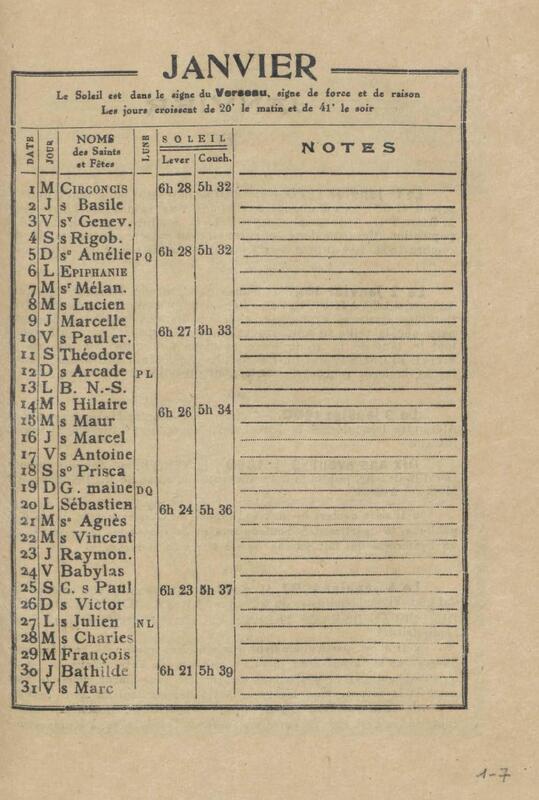 JANVIER
Le Soleil est dans le signe du Verseau, signe de force et de raison
Les jours croissent de 20' le matin et de 41' le soir
DATE JOUR NOMS des Saints et Fêtes LUNE SOLEIL Lever Couch. NOTES
1 M CIRCONCIS 6h 28 5h 32
2 J s Basile
3 V sᵛ Genev.
4 S s Rigob.
5 D sᵉ Amélie PQ 6h 28 5h 32
6 L EPIPHANIE
7 M sʳ Mélan.
8 M s Lucien
9 J Marcelle 6h 27 5h 33
10 V s Paul er.
11 S Théodore
12 D s Arcade PL
13 L B. N.-S.
14 M s Hilaire 6h 26 5h 34
15 M s Maur
16 J s Marcel
17 V s Antoine
18 S sᵒ Prisca
19 D G. maine DQ
20 L Sébastien 6h 24 5h 36
21 M sᵉ Agnès
22 M s Vincent
23 J Raymon.
24 V Babylas
25 S C. s Paul 6h 23 5h 37
26 D s Victor
27 L s Julien NL
28 M s Charles
29 M François
30 J Bathilde 6h 21 5h 39
31 V s Marc
1-7